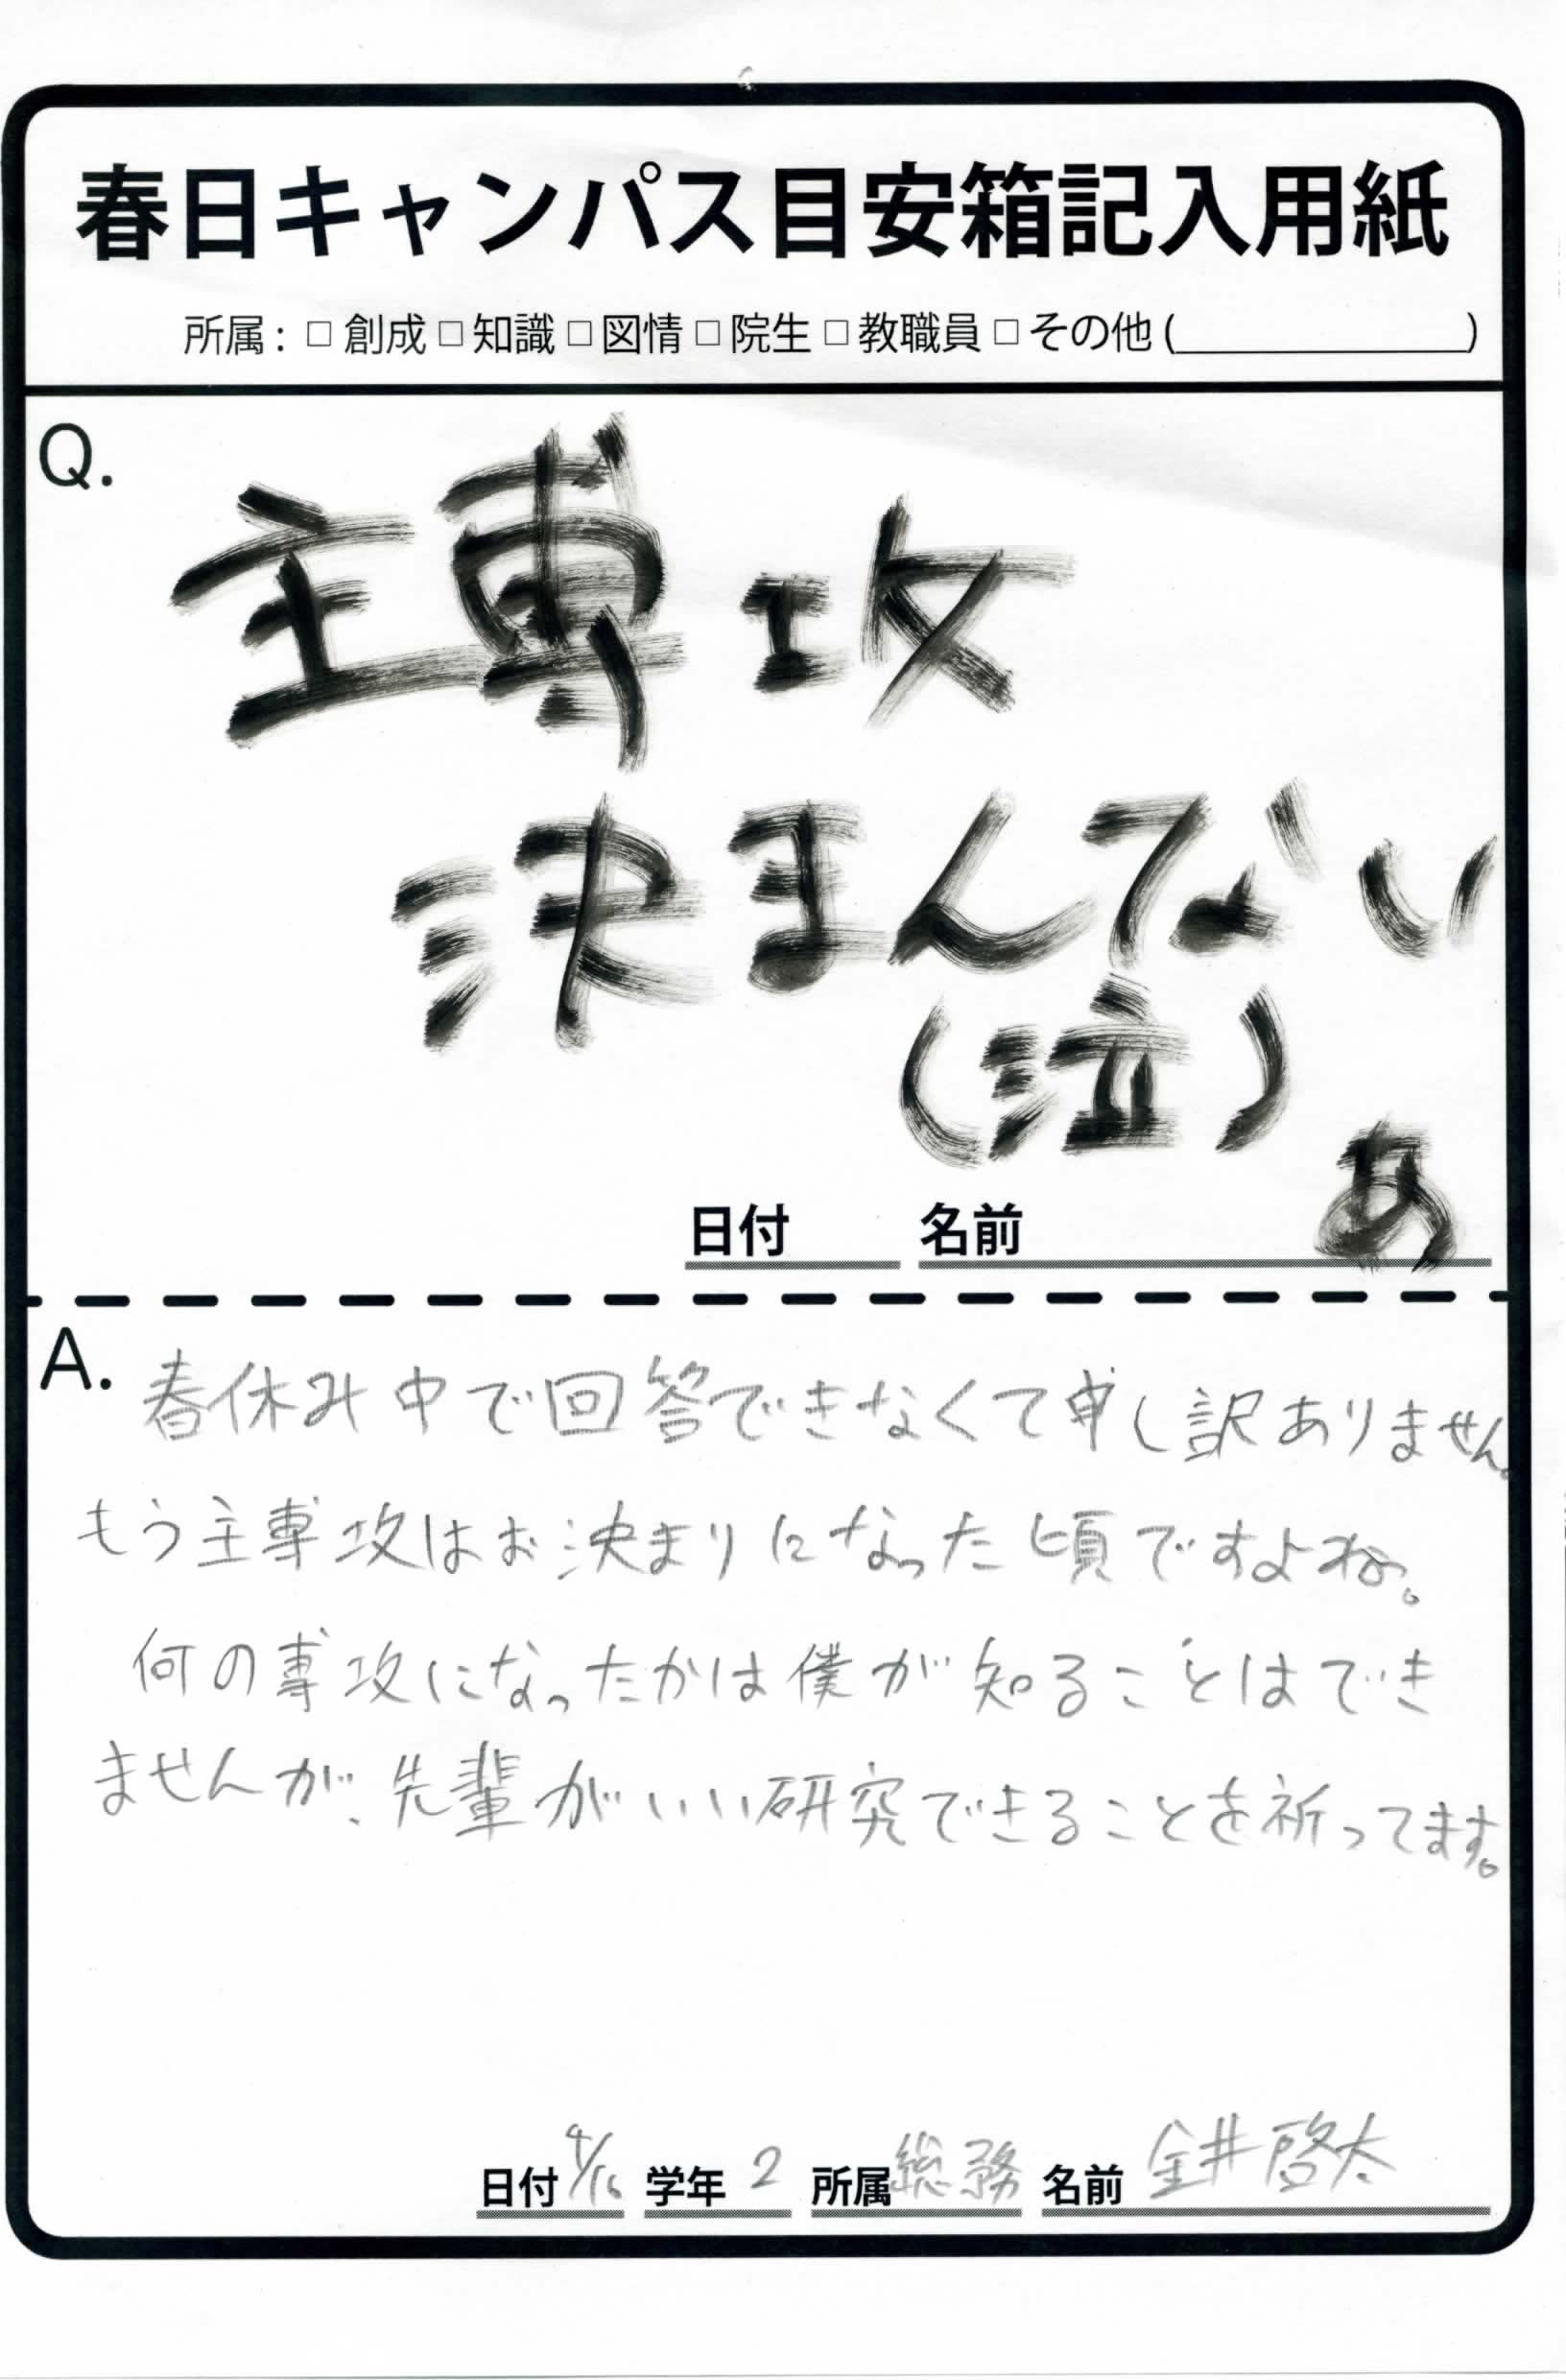 春日キャンパス目安箱記入用紙
所属: □ 創成 □ 知識 □ 図情 □ 院生 □ 教職員 □ その他 ( )
Q.
主専攻
決まんない
(泣)
日付 名前 あ
A. 春休み中で回答できなくて申し訳ありません。
もう主専攻はお決まりになった頃ですよね。
何の専攻になったかは僕が知ることはでき
ませんが、先輩がいい研究できることを祈ってます。
日付 4/16 学年 2 所属 総務 名前 金井啓太